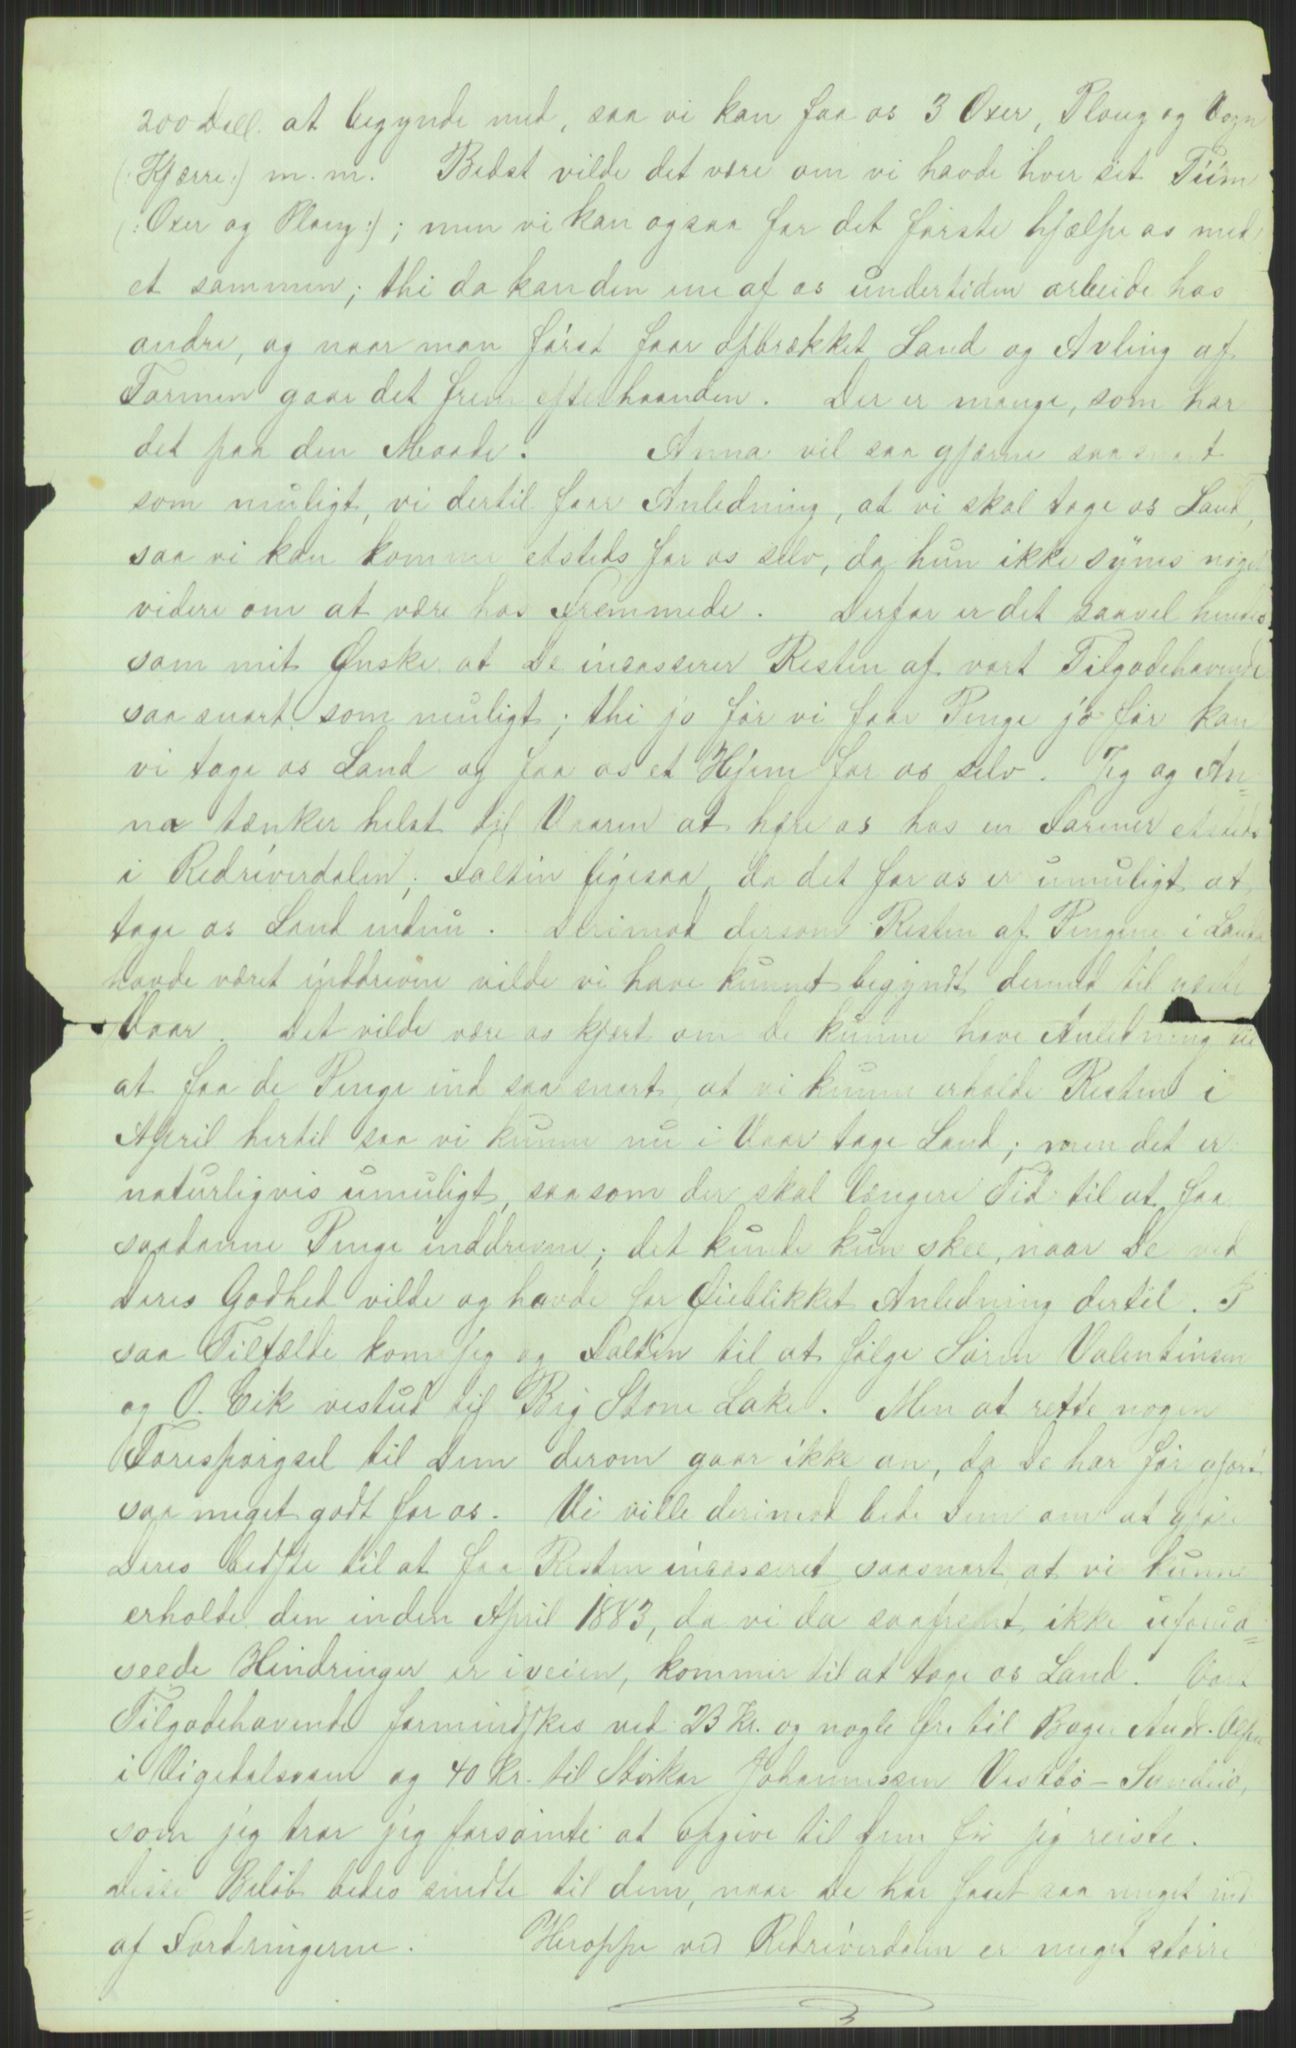 200 Doll. at begynde med, saa vi kan faa os 3 Oxer, Ploug og Vogn
(:Kjærre:) m. m. Bedst vilde det være om vi havde hver sit Tiim
(:Oxer og Ploug:); men vi kan ogsaa for det første hjælpe os med
et sammen; thi da kan den ene af os undertiden arbeide hos
andre, og naar man først faar opbrækket Land og Avling af
Farmen gaar det frem efterhaanden. Der er mange, som har
det paa den Maade. Anna vil saa gjærne saasnart
som muligt, vi dertil faar Anledning, at vi skal tage os Land,
saa vi kan komme etsteds for os selv, da hun ikke synes noget
videre om at være hos Fremmede. Derfor er det saavel hendes
som mit Ønske at De incasserer Resten af vort Tilgodehavende
saa snart som muligt; thi jo før vi faar Penge jo før kan
vi tage os Land og faa os et Hjem for os selv. Jeg og An=
na tænker helst til Vaaren at hyre os hos en Farmer etsteds
i Redriverdalen; Faltin ligesaa, da det for os er umuligt at
tage os Land endnu. Derimod dersom Resten af Pengene i
havde været inddrevne vilde vi have kunnet begyndt dermed til næste
Vaar. Det vilde være os kjært om De kunne have Anledning til
at faa de Penge ind saa snart, at vi kunne erholde Resten i
April hertil saa vi kunne nu i Vaar tage Land; men det er
naturligvis umuligt, saasom der skal længere Tid til at faa
saadanne Penge inddrevne; det kunde kun skee, naar De ved
Deres Godhed vilde og havde for Øieblikket Anledning dertil. I
saa Tilfælde kom jeg og Faltin til at følge Søren Valentinsen
og O. Eik vestud til Big Stone Lake. Men at rette nogen
Forespørgsel til Dem derom gaar ikke an, da De har før gjort
saa meget godt for os. Vi ville derimod bede Dem om at gjøre
Deres bedste til at faa Resten incasseret saasnart, at vi kunne
erholde den inden April 1883, da vi da saafremt ikke uforud=
seede Hindringer er iveien, kommer til at tage os Land. Vort
Tilgodehavende formindskes ved 23 Kr. og nogle Øre til Bager Andr.
i Vigedalsøren og 40 Kr. til Styrkar Johannessen Vestbø -
som jeg tror jeg forsømte at opgive til Dem før jeg reiste.
Disse Beløb bedes sendte til dem, naar De har faaet saa meget ind
af Fordringerne. Heroppe ved Redriverdalen er meget større
3